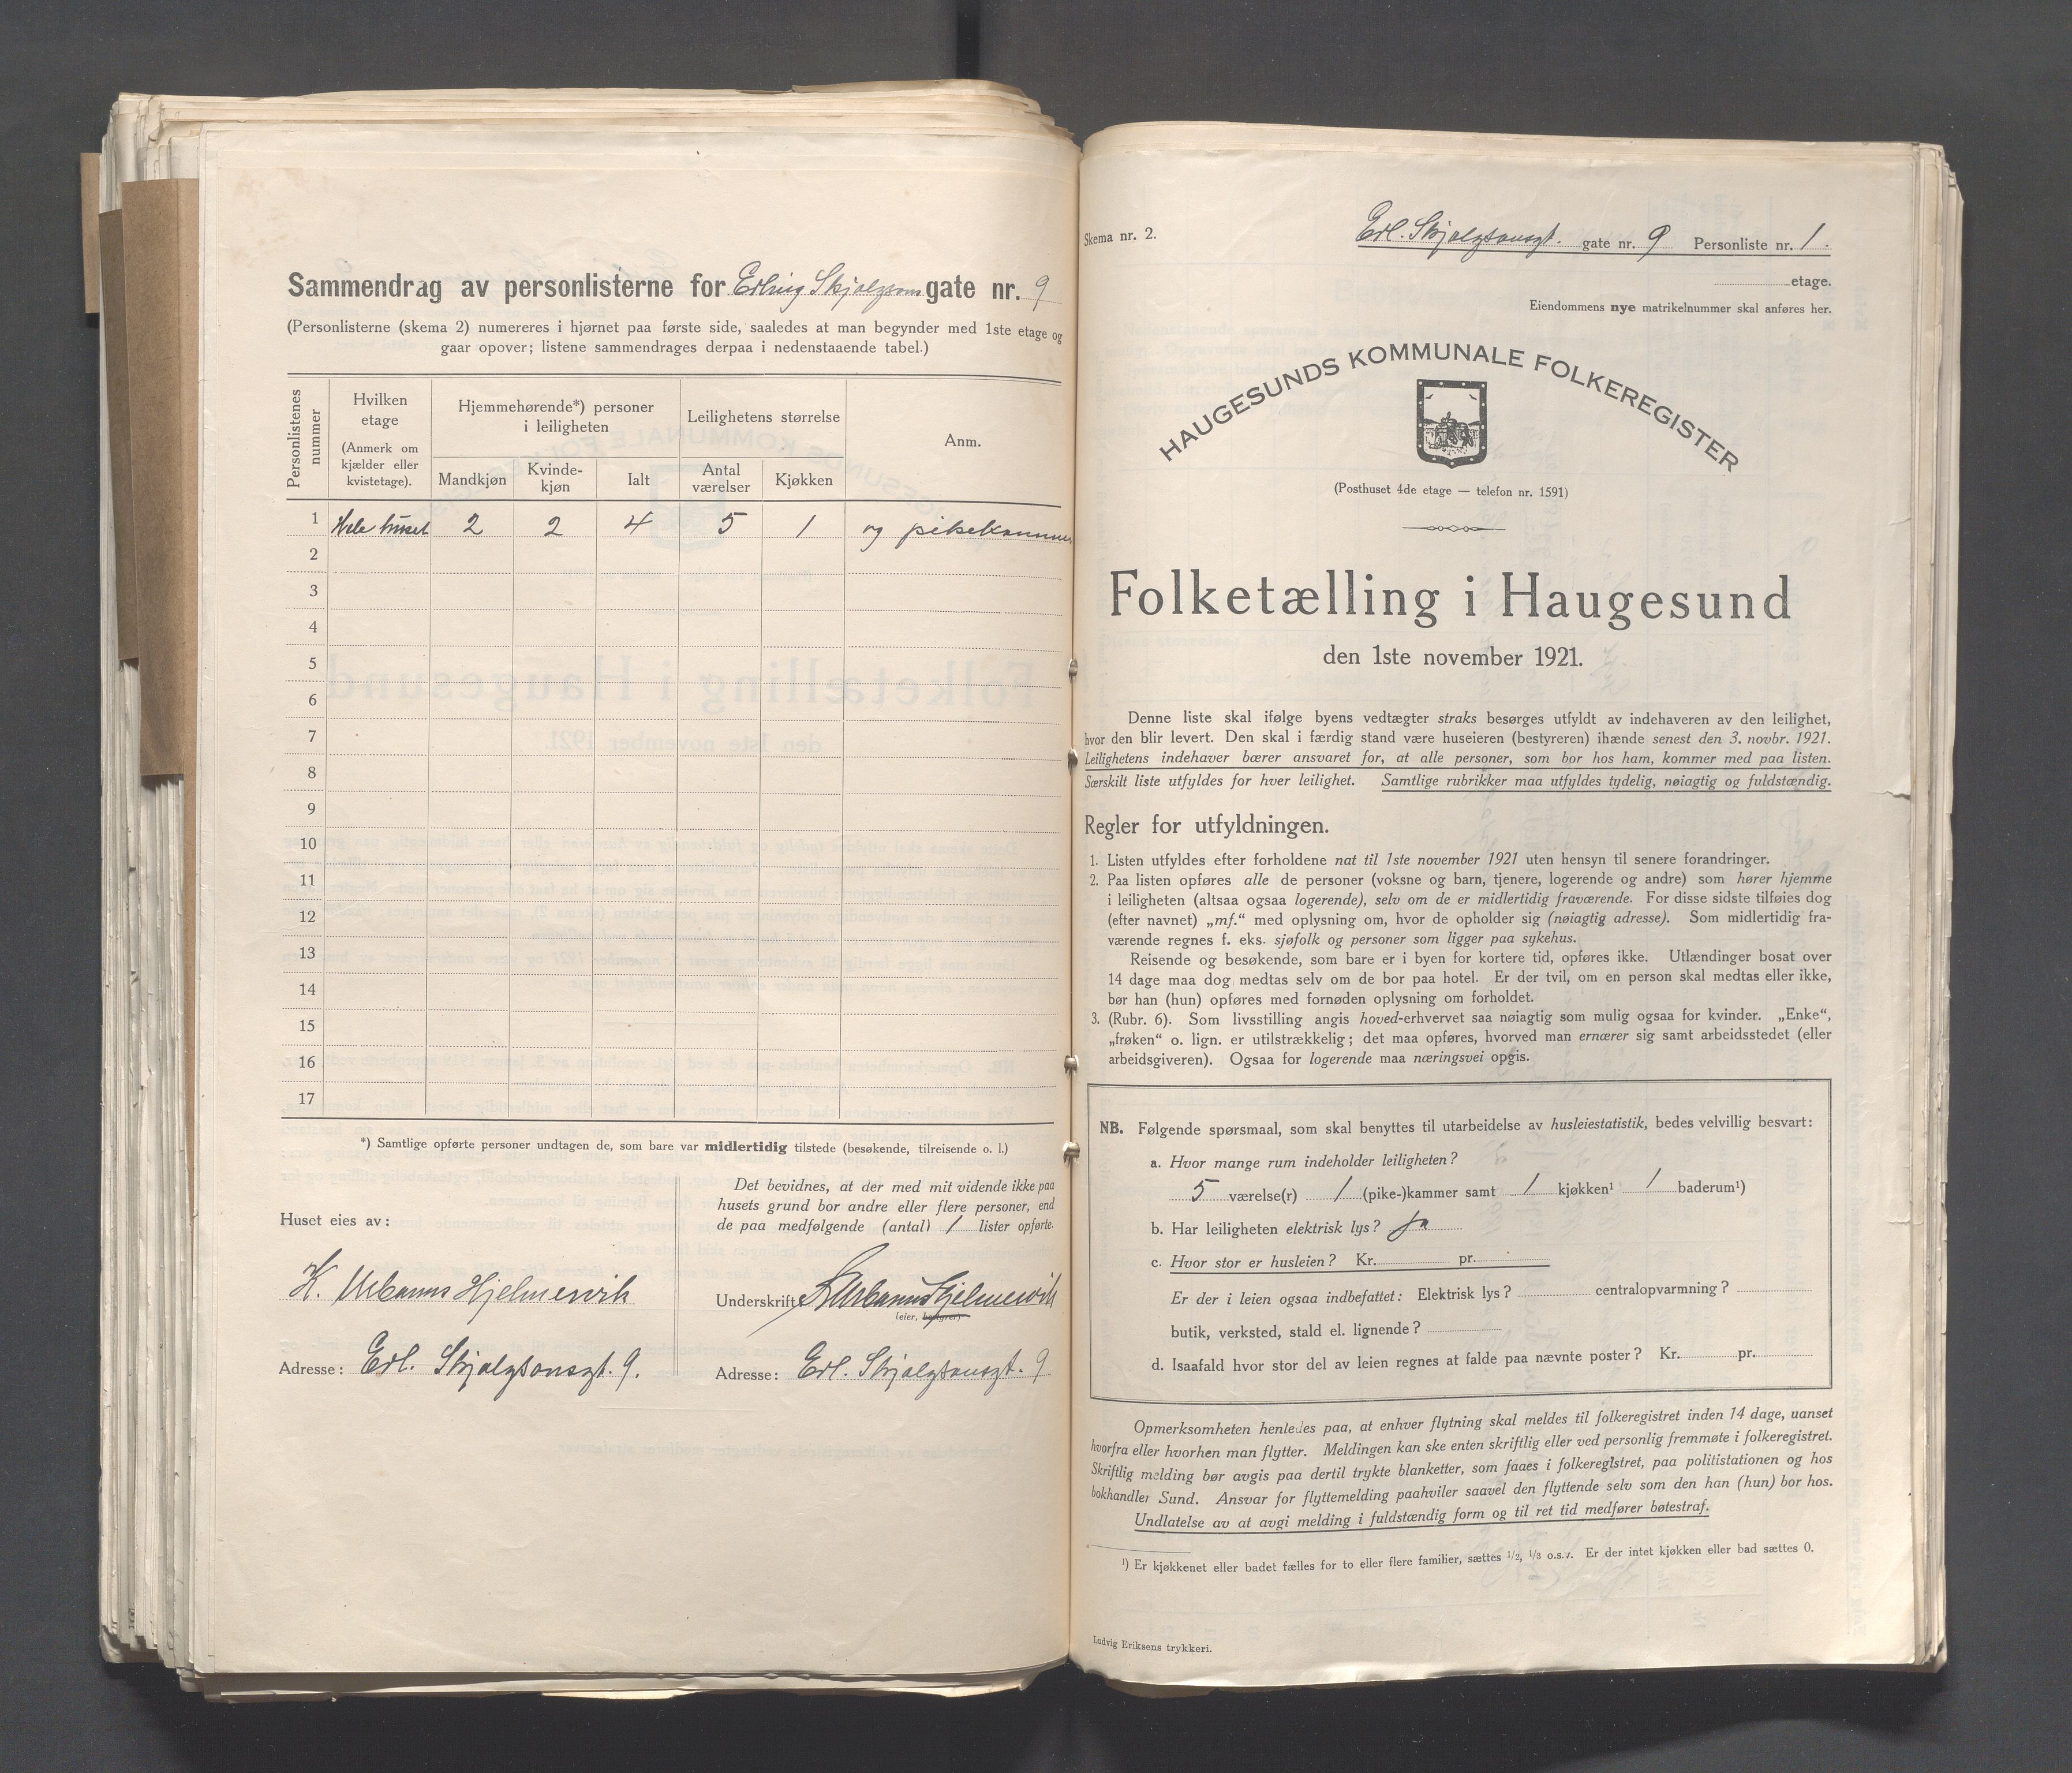 Sammendrag av personlisterne for Erling Skjalgsons gate nr. 9
(Personlisterne (skema 2) numereres i hjørnet paa første side, saaledes at man begynder med 1ste etage og
gaar opover; listene sammendrages derpaa i nedenstaaende tabel.)
Personlistenes nummer
Hvilken etage (Anmerk om kjælder eller kvistetage).
Hjemmehørende*) personer i leiligheten
Mandkjøn
Kvinde-kjøn
Ialt
Leilighetens størrelse
Antal værelser
Kjøkken
Anm.
1 Hele huset 2 2 4 5 1 og pikekammer
2
3
4
5
6
7
8
9
10
11
12
13
14
15
16
17
*) Samtlige opførte personer undtagen de, som bare var midlertidig tilstede (besøkende, tilreisende o. l.)
Huset eies av:
K. Urbanus Hjelmervik
Adresse: Erl. Skjalgsonsgt. 9.
Det bevidnes, at der med mit vidende ikke paa
husets grund bor andre eller flere personer, end
de paa medfølgende (antal) 1 lister opførte.
Underskrift K Urbanus Hjelmervik
(eier, bestyrer)
Adresse: Erl. Skjalgsonsgt. 9
Skema nr. 2.
Erl. Skjalgsonsgt. gate nr. 9 Personliste nr. 1.
etage.
Eiendommens nye matrikelnummer skal anføres her.
HAUGESUNDS KOMMUNALE FOLKEREGISTER
(Posthuset 4de etage — telefon nr. 1591)
Folketælling i Haugesund
den 1ste november 1921.
Denne liste skal ifølge byens vedtægter straks besørges utfyldt av indehaveren av den leilighet,
hvor den blir levert. Den skal i færdig stand være huseieren (bestyreren) ihænde senest den 3. novbr. 1921.
Leilighetens indehaver bærer ansvaret for, at alle personer, som bor hos ham, kommer med paa listen.
Særskilt liste utfyldes for hver leilighet. Samtlige rubrikker maa utfyldes tydelig, nøiagtig og fuldstændig.
Regler for utfyldningen.
1. Listen utfyldes efter forholdene nat til 1ste november 1921 uten hensyn til senere forandringer.
2. Paa listen opføres alle de personer (voksne og barn, tjenere, logerende og andre) som hører hjemme
i leiligheten (altsaa ogsaa logerende), selv om de er midlertidig fraværende. For disse sidste tilføies dog
(efter navnet) „mf.“ med oplysning om, hvor de opholder sig (nøiagtig adresse). Som midlertidig fra-
værende regnes f. eks. sjøfolk og personer som ligger paa sykehus.
Reisende og besøkende, som bare er i byen for kortere tid, opføres ikke. Utlændinger bosat over
14 dage maa dog medtas selv om de bor paa hotel. Er der tvil, om en person skal medtas eller ikke,
bør han (hun) opføres med fornøden oplysning om forholdet.
3. (Rubr. 6). Som livsstilling angis hoved-erhvervet saa nøiagtig som mulig ogsaa for kvinder. „Enke“,
„frøken“ o. lign. er utilstrækkelig; det maa opføres, hvorved man ernærer sig samt arbeidsstedet (eller
arbeidsgiveren). Ogsaa for logerende maa næringsvei opgis.
NB. Følgende spørsmaal, som skal benyttes til utarbeidelse av husleiestatistik, bedes velvillig besvart:
a. Hvor mange rum indeholder leiligheten?
5 værelse(r) 1 (pike-)kammer samt 1 kjøkken¹ 1 baderum¹)
b. Har leiligheten elektrisk lys? Ja
c. Hvor stor er husleien? Kr. pr.
Er der i leien ogsaa indbefattet: Elektrisk lys? centralopvarmning?
butik, verksted, stald el. lignende?
d. Isaafald hvor stor del av leien regnes at falde paa nævnte poster? Kr. pr.
Opmerksomheten henledes paa, at enhver flytning skal meldes til folkeregistret inden 14 dage, uanset
hvorfra eller hvorhen man flytter. Meldingen kan ske enten skriftlig eller ved personlig fremmøte i folkeregistret.
Skriftlig melding bør avgis paa dertil trykte blanketter, som faaes i folkeregistret, paa politistationen og hos
bokhandler Sund. Ansvar for flyttemelding paahviler saavel den flyttende selv som den han (hun) bor hos.
Undlatelse av at avgi melding i fuldstændig form og til ret tid medfører bøtestraf.
¹) Er kjøkkenet eller badet fælles for to eller flere familier, sættes ½, ⅓ o.s.v. Er der intet kjøkken eller bad sættes 0.
Ludvig Eriksens trykkeri.